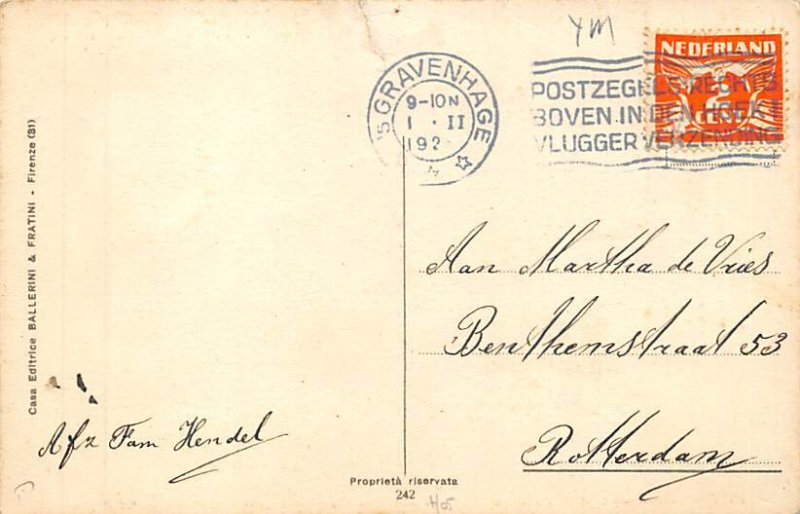 YM
NEDERLAND
'S GRAVENHAGE
9-10N
1 · II
192
POSTZEGELS RECHTS
BOVEN IN DEN HOEK!
VLUGGER VERZENDING
Aan Martha de Vries
Benthemstraat 53
Rotterdam
Afz Fam Hendel
Casa Editrice BALLERINI & FRATINI - Firenze (31)
Proprietà riservata
242